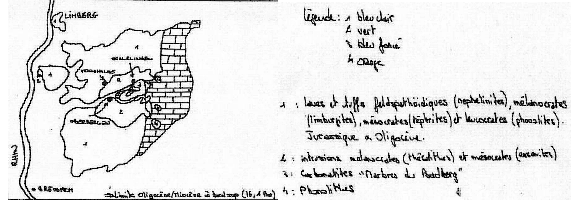 LIMBERG
RHIN
BREISACH
Légende: 1 bleu clair
2 vert
3 bleu foncé
4 rouge
1 : laves et tuffs feldspathoïdiques (nephelinites), mélanocrates
(limburgites), mésocrates (téphrites) et leucocrates (phonolites).
Jurassique à Oligocène.
2 : intrusions mélanocrates (théralites) et mésocrates (essexites)
3 : Carbonatites "Marbres du Badberg"
4 : Phonolithes
limite Oligocène/Miocène à